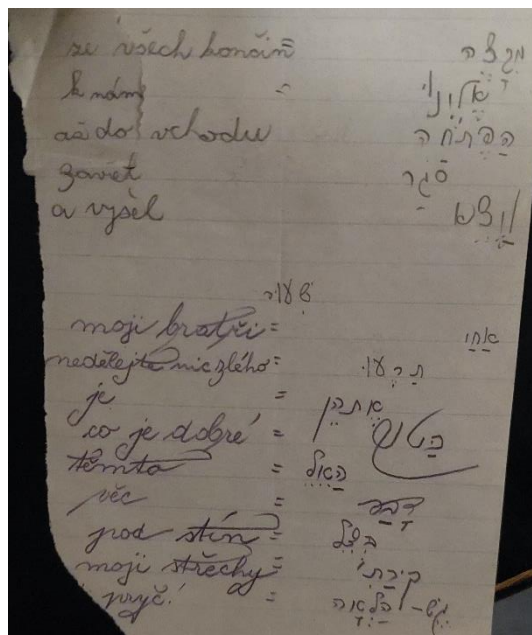 ze všech končin = מִקָּצֶה
k nám = אֵלֵינוּ
až do vchodu הַפֶּתְחָה
zavřel סָגַר
a vyšel וַיֵּצֵא
moji bratři = אַחַי
nedělejte nic zlého = תָּרֵעוּ
je = אֶתְהֶן
co je dobré = כַּטּוֹב
těmto = הָאֵל
věc = דָּבָר
pod stín = בְּצֵל
moji střechy = קֹרָתִי
pryč! = גֶּשׁ-הָלְאָה